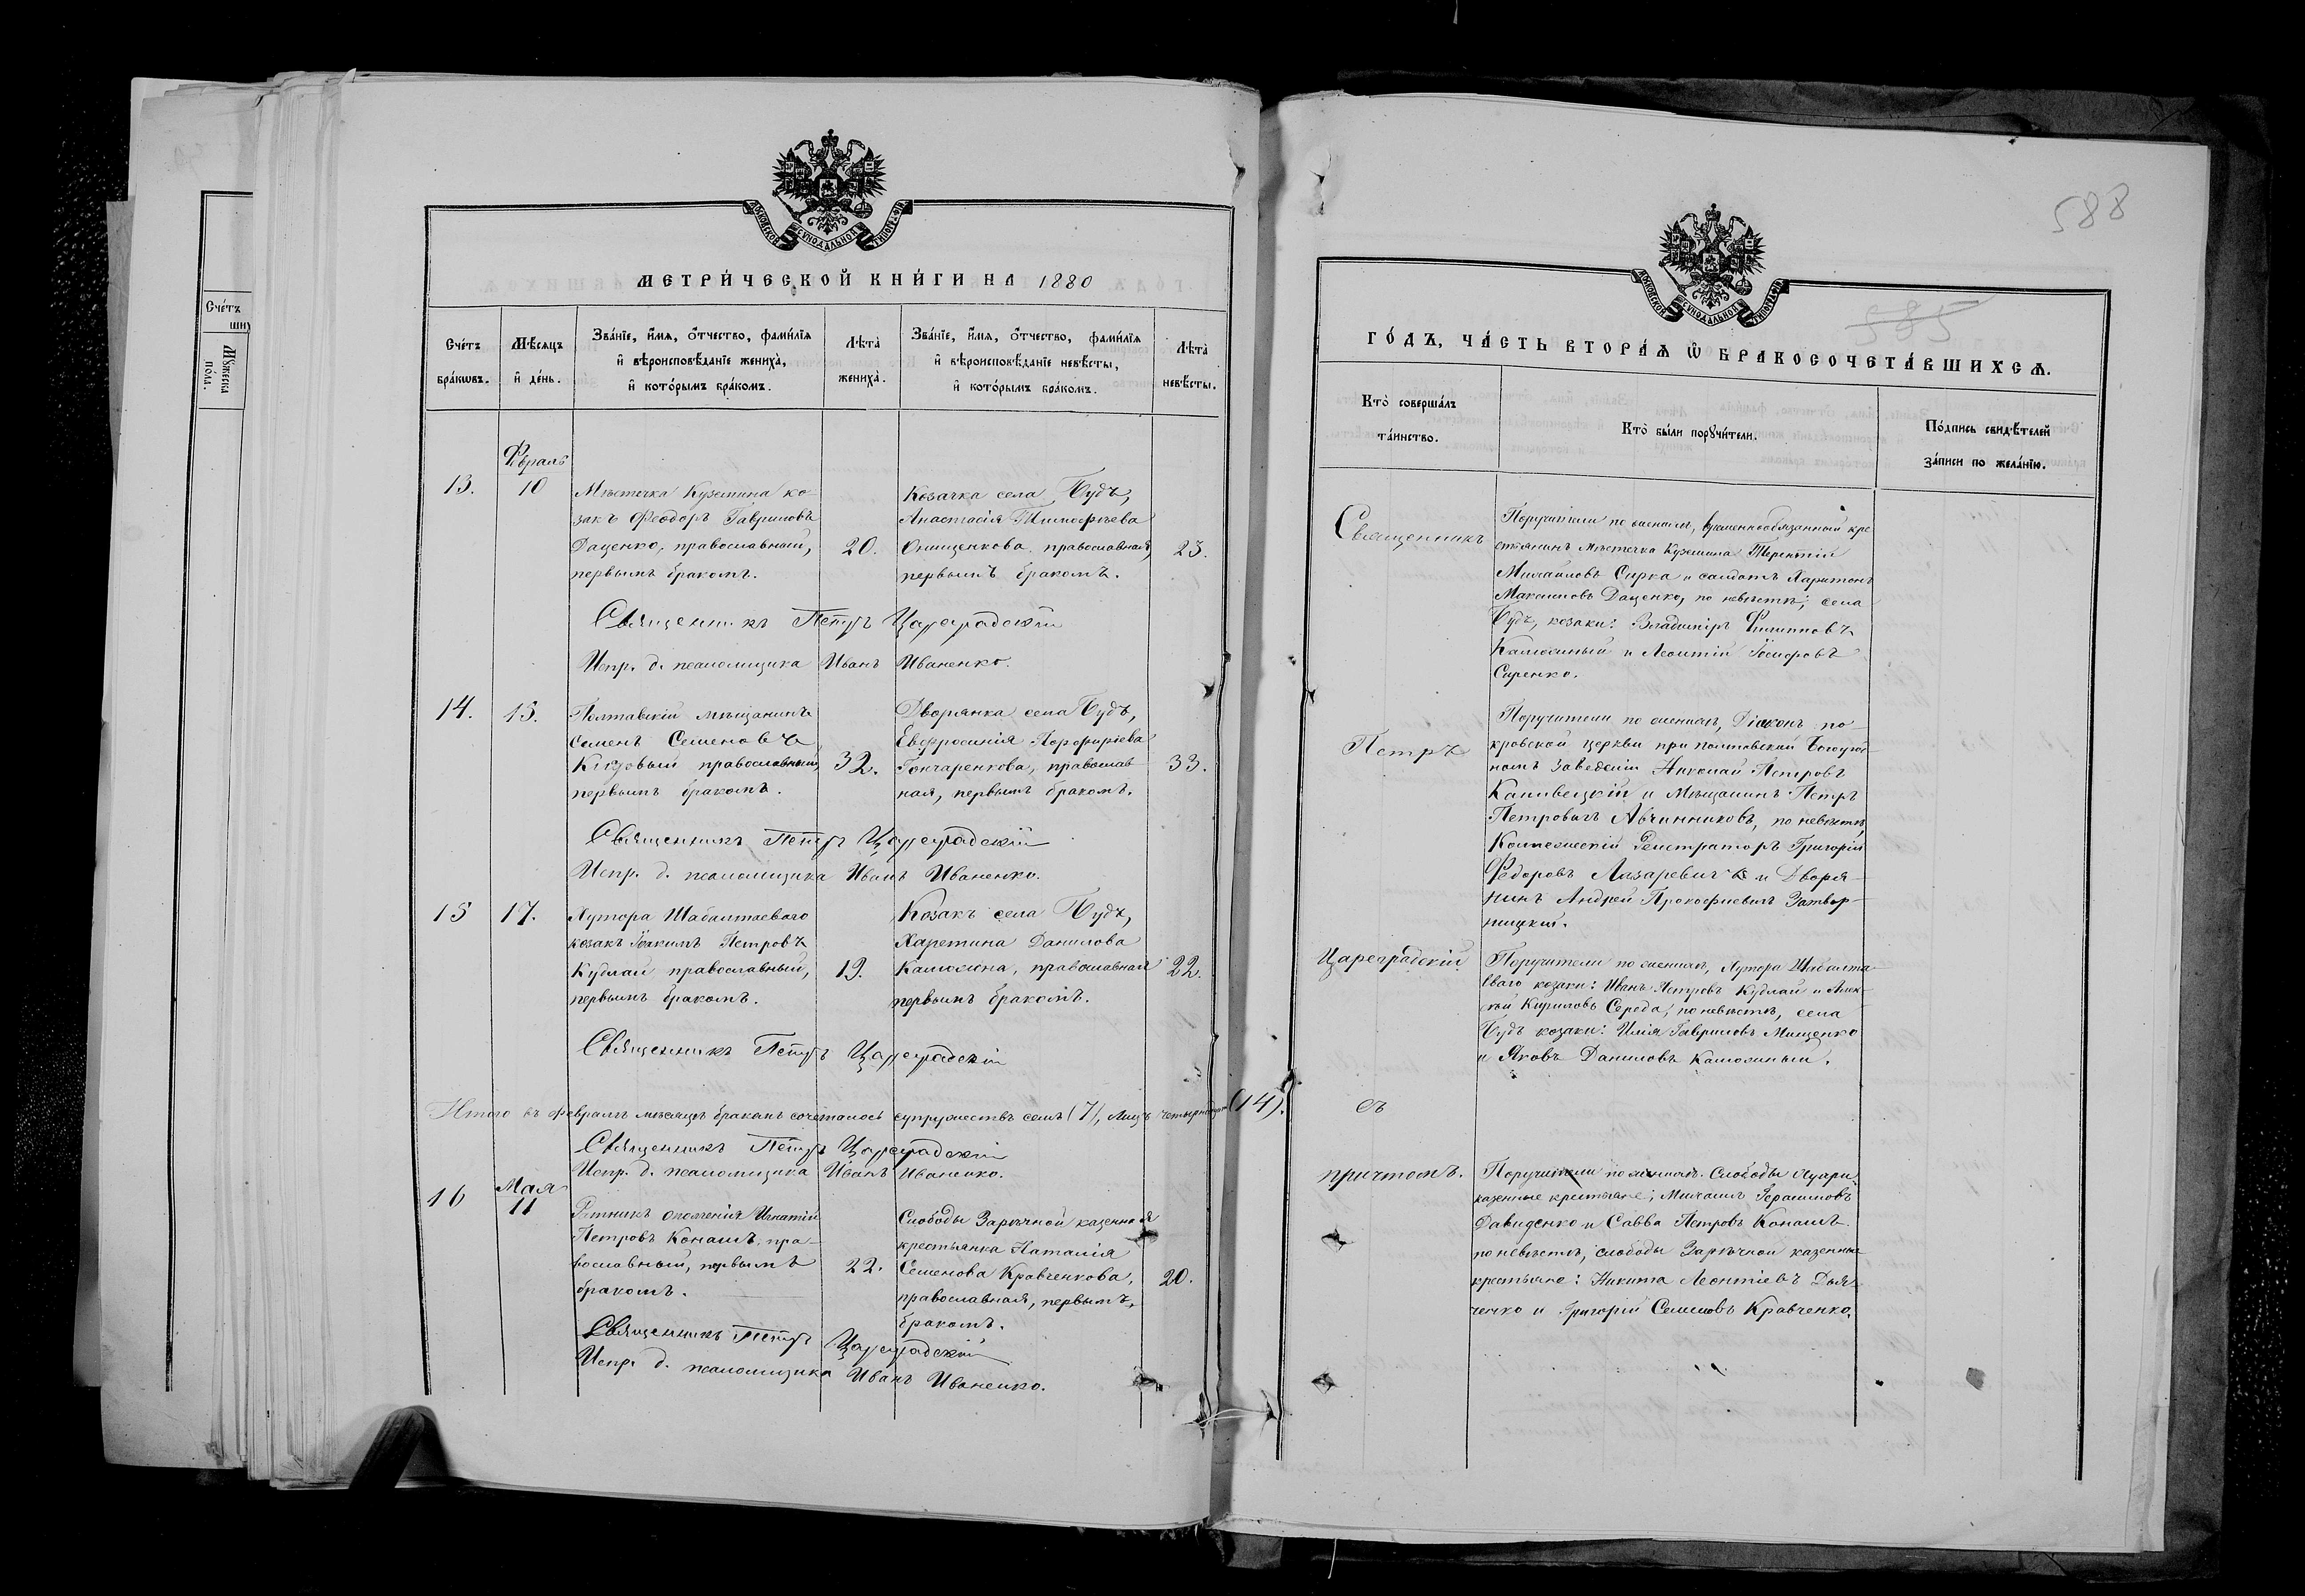 МОСКОВСКОЙ СѴНОДАЛЬНОЙ ТИПОГРАФІИ
МЕТРИ́ЧЕСКОЙ КНИ́ГИ НА 1880
Сче́тъ
Мꙋ́жеска
по́ла.
Сче́тъ
бра́кѡвъ.
Мѣ́сяцъ
и҆ де́нь.
Зва́нїе, и҆́мѧ, ѻ҆́тчество, фами́лїѧ
и҆ вѣроисповѣ́данїе жениха̀,
и҆ кото́рымъ бра́комъ.
Лѣ́та̀
жениха̀.
Зва́нїе, и҆́мѧ, ѻ҆́тчество, фами́лїѧ
и҆ вѣроисповѣ́данїе невѣ́сты,
и҆ кото́рымъ бра́комъ.
Лѣ́та̀
невѣ́сты.
Февраль
13.
10
Мѣстечка Куземина ко-
закъ Феодоръ Гавриловъ
Даценко, православный,
первымъ бракомъ.
20.
Козачка села Будъ,
Анастасія Тимофѣева
Онищенкова православная,
первымъ бракомъ.
23.
Священникъ Петръ Цареградскій
Испр. д. псаломщика Иванъ Иваненко.
14.
15.
Полтавскій мѣщанинъ
Семенъ Семеновъ
православный,
первымъ бракомъ.
32.
Дворянка села Будъ,
Евфросинія Порфиріева
Гончаренкова, православ
ная, первымъ бракомъ.
33.
Священникъ Петръ Цареградскій
Испр. д. псаломщика Иванъ Иваненко.
15
17.
Хутора Шабалтаеваго
козакъ Іоакимъ Петровъ
Кудлай православный,
первымъ бракомъ.
19.
Козакъ села Будъ,
Харетина Данилова
Калюжна, православная
первымъ бракомъ.
22.
Священникъ Петръ Цареградскій
Итого въ февралѣ мѣсяцѣ бракомъ сочеталось супружествъ семь (7), лицъ четырнадцать (14).
Священникъ Петръ Цареградскій
Испр. д. псаломщика Иванъ Иваненко.
16
Мая
11
Ратникъ ополченія Игнатій
Петровъ Конашъ, пра-
вославный, первымъ
бракомъ.
22.
Слободы Зарѣчной казенная
крестьянка Наталія
Семенова Кравченкова,
православная, первымъ,
бракомъ.
20.
Священникъ Петръ Цареградскій
Испр. д. псаломщика Иванъ Иваненко.
588
МОСКОВСКОЙ СѴНОДАЛЬНОЙ ТИПОГРАФІИ
585
ГО́ДЪ, ЧА́СТЬ ВТОРА́Ѧ Ѡ҆ БРАКОСОЧЕТА́ВШИХСѦ.
Кто̀ соверша́лъ
та́инство.
Кто̀ бы́ли порꙋчи́тели.
По́дпись свидѣ́телей
за́писи по жела́нїю.
Священникъ
Поручители по женихѣ, временнообязанный кре
стьянинъ Мѣстечка Куземина Терентій
Михайловъ Сирка и солдатъ Харитонъ
Максимовъ Даценко, по невѣстѣ; села
Будъ, козаки: Владиміръ Филипповъ
Калюжный и Леонтій Іосифовъ
Саренко.
Петръ
Поручители по женихѣ, Діаконъ по-
кровской церкви при полтавскомъ Богоугод-
номъ Заведеніи Николай Петровъ
Каливецкій и Мѣщанинъ Петръ
Петровичъ Авчинниковъ, по невѣстѣ,
Коллежскій Регистраторъ Григорій
Федоровъ Лазаревичъ и Дворя-
нинъ Андрей Прокофіевичъ Затвор-
ницкій.
Цареградскій
Поручители по женихѣ, Хутора Шабалта-
еваго козаки: Иванъ Петровъ Кудлай и Алек-
сѣй Кириловъ Середа, по невѣстѣ, села
Будъ козаки: Илія Гавриловъ Мищенко
и Яковъ Даниловъ Калюжный.
съ
причтомъ.
Поручители по женихѣ. Слободы
казенные крестьяне; Михаилъ Герасимовъ
Давиденко и Савва Петровъ Конашъ.
по невѣстѣ, слободы Зарѣчной казенные
крестьяне: Никита Леонтіевъ Дья-
ченко и Григорій Семеновъ Кравченко.